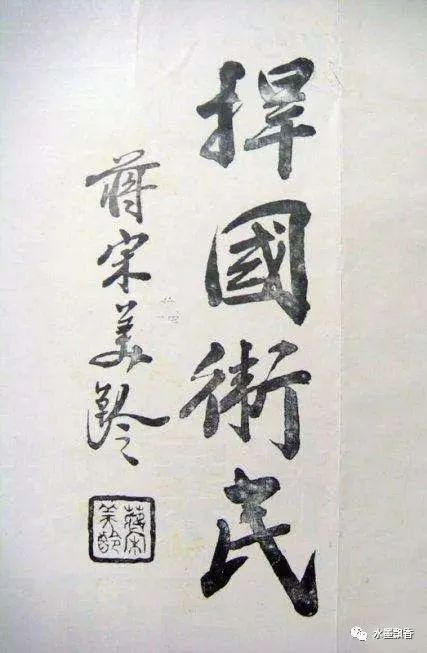 捍國衛民
蔣宋美齡
蔣宋
美齡
水墨飘香